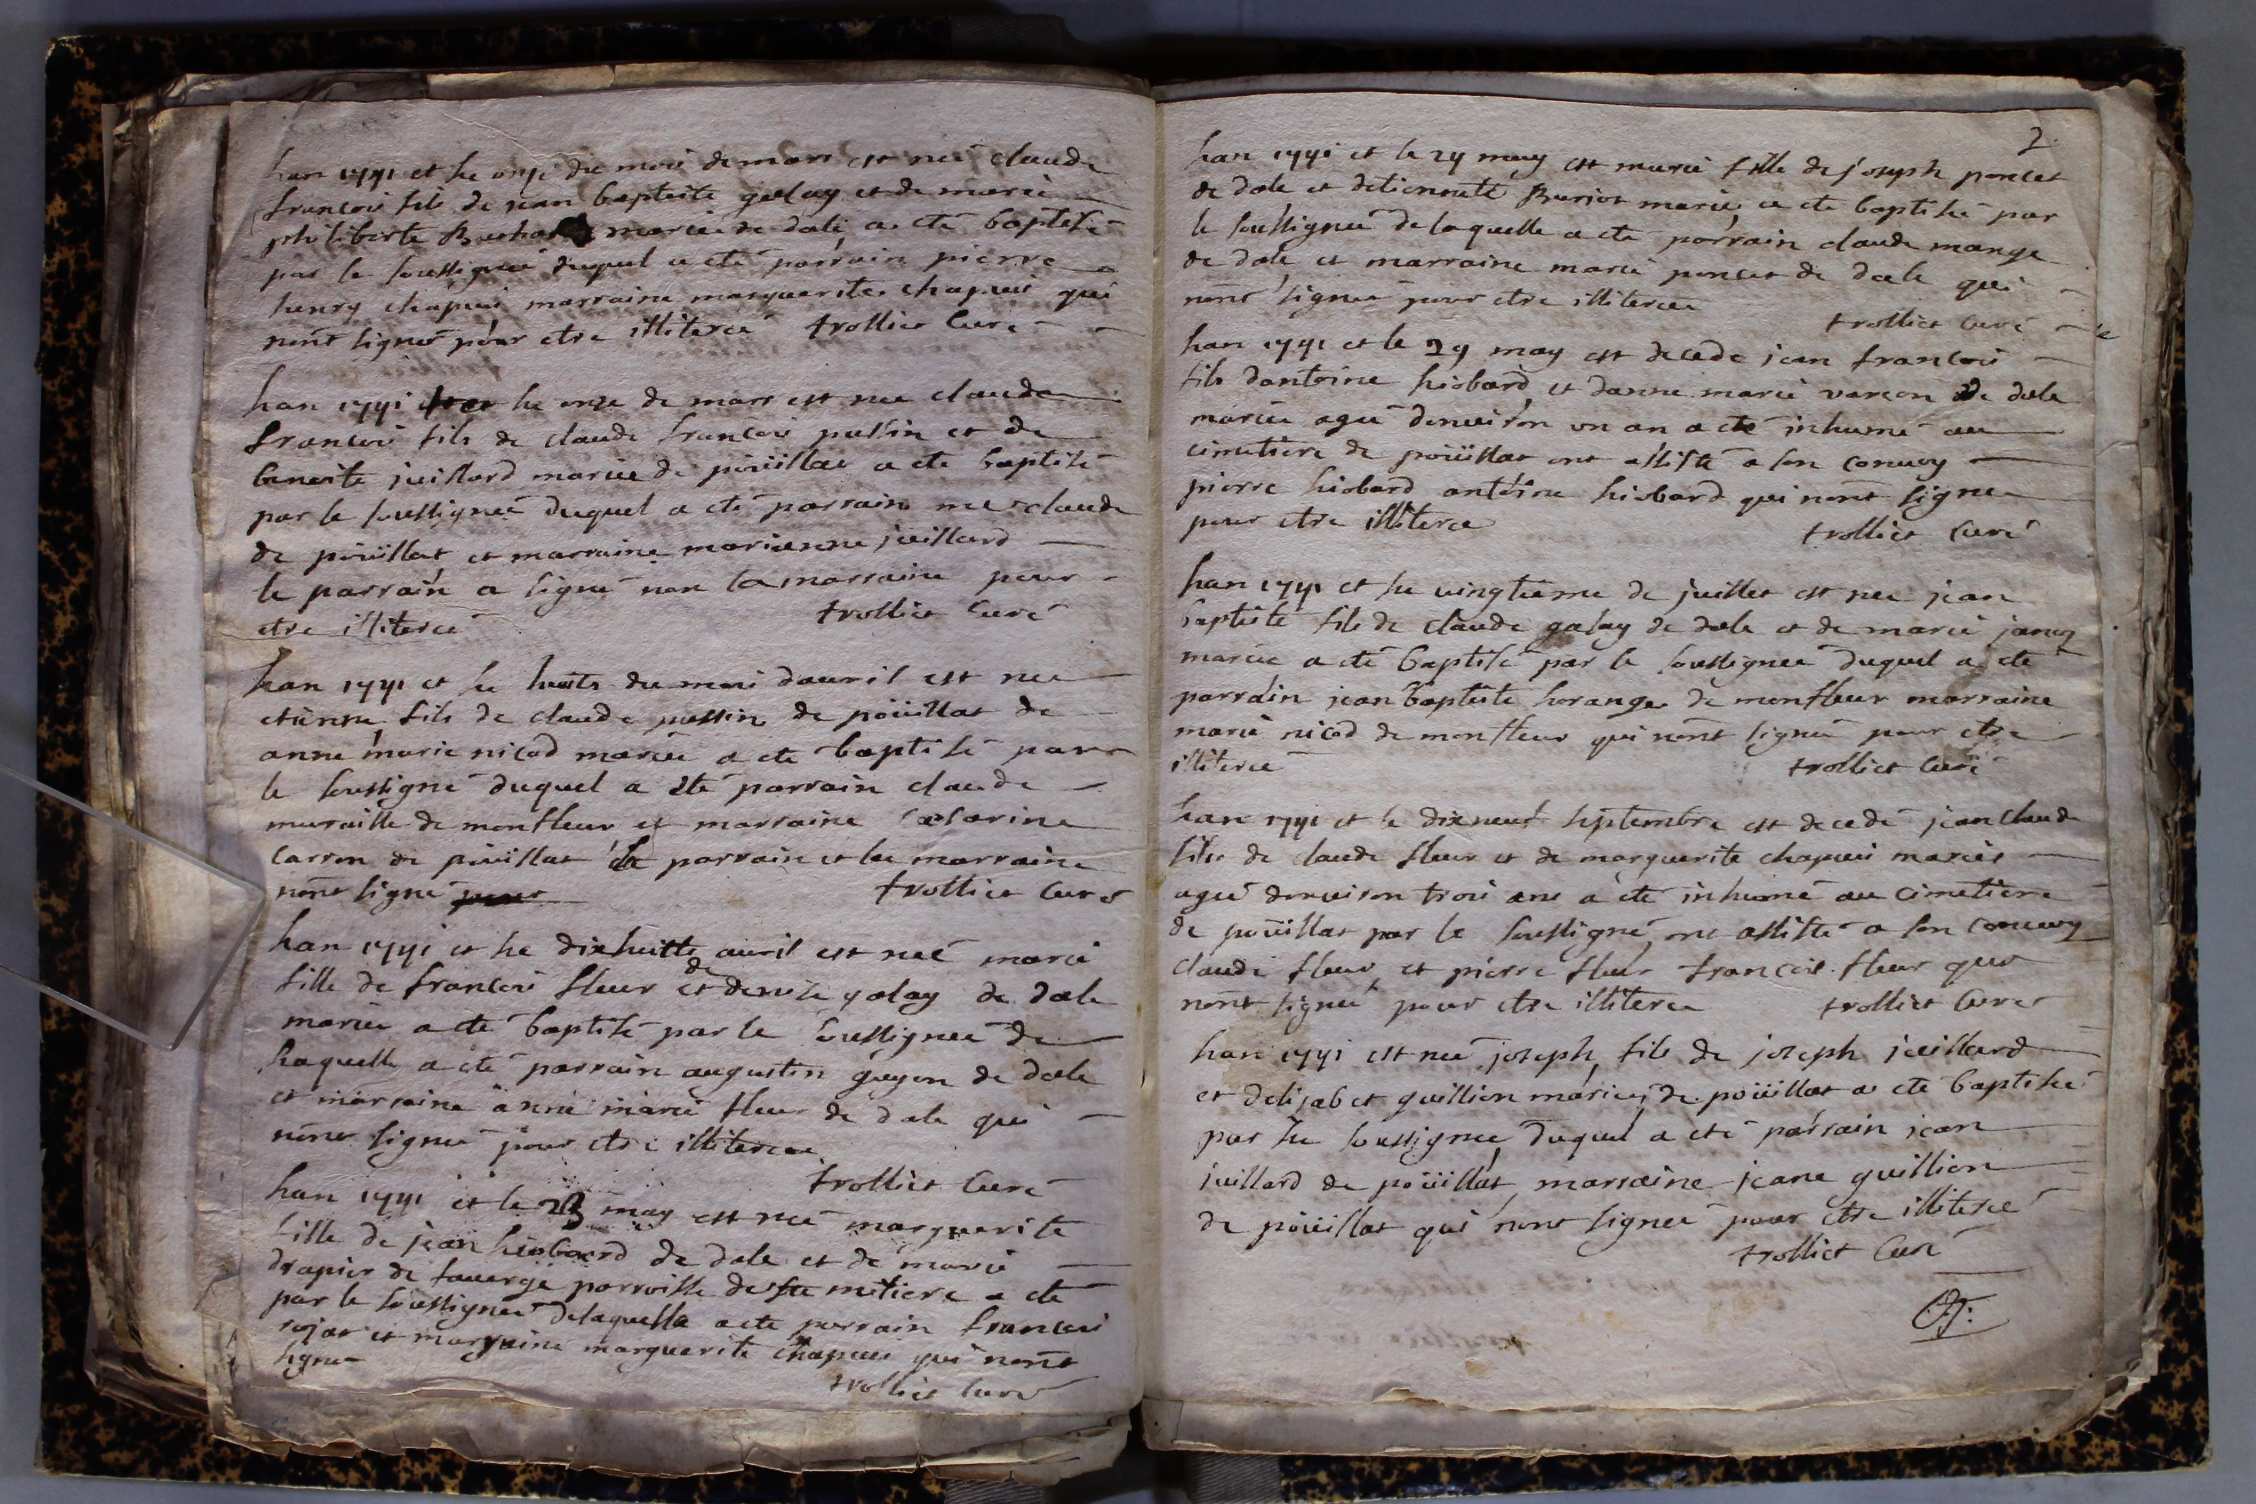 han 1791 et he onze du mois de mars est neé claude
francois fils de jean baptiste galay et de marie
philiberte mariés de dale a eté baptisé
par le soussigneé duquel a eté parrain pierre
henry chapuis marraine marguerite chapuis qui
nont signer pour etre illitereé trolliet Curé
han 1791 et he onze de mars est nee claude
francois fils de claude francois pussin et de
benoite juillard mariee de poüillat a ete baptisé
par le soussigneé duquel a eté parrain me claude
de poüillat et marraine marienne juillard
le parrain a signé non la marraine pour
etre illitereé trolliet Curé
han 1791 et he huits du mois davril est nee
etienne fils de claude pussin de poüillat de
anne marie nicod mariée a ete baptisé par
le soussigné duquel a eté parrain claude
muraille de monfleur et marraine Catarine
Carron de poüillat le parrain et la marraine
nont signé trolliet Curé
han 1791 et he dixhuitte avril est neé marie
fille de francois fleur et de denise galay de dale
mariée a eté baptisé par le soussigneé de
haquelle a eté parrain augustin guyon de dale
et marraine anne marie fleur de dale qui
nont signeé pour etre illitereé
trolliet Curé
han 1791 et le 23 may est neé marguerite
fille de jean hiobard de dale et de marie
drapier de faverge parroisse de metiere a eté
par le soussigneé delaquelle a eté parrain francois
rojat et marraine marguerite chapuis qui nont
signer
trolliet Curé
2
han 1791 et le 29 may est marie fille de joseph poncet
de dale et detiennete Buriot marié a eté baptisé par
le soussigneé de laquelle a eté parrain claude mange
de dale et marraine marie poncet de dale qui
nont signeé pour etre illitereé
trolliet Curé
han 1791 et le 29 may est decede jean francois
fils dantoine hiobard et danne marie varcon de dale
mariée ageé denviron un an a eté inhumé au
cimetiere de poüillat ont assisté a son convoy
pierre hiobard antoine hiobard qui nont signeé
pour etre illitere
trolliet Curé
han 1791 et he vingtieme de juillet est nee jean
baptiste fils de claude galay de dale et de marie
mariée a eté baptisé par le soussigneé duquel a ete
parrain jean baptiste horange de monfleur marraine
marie nicod de monfleur qui nont signeé pour etre
illitereé trolliet Curé
han 1791 et le dixneuf septembre est decedé jean claude
fils de claude fleur et de marguerite chapuis mariés
ageé denviron trois ans a eté inhumé au cimetiere
de poüillat par le soussigné ont assisté a son convoy
claude fleur et pierre fleur francois fleur qui
nont signeé pour etre illitereé trolliet Curé
han 1791 est neé joseph fils de joseph juillard
et delisabet guillion mariés de poüillat a eté baptisé
par he soussigneé duquel a eté parrain jean
juillard de poüillat marraine jeane guillion
de poüillat qui nont signeé pour etre illitereé
trolliet Curé